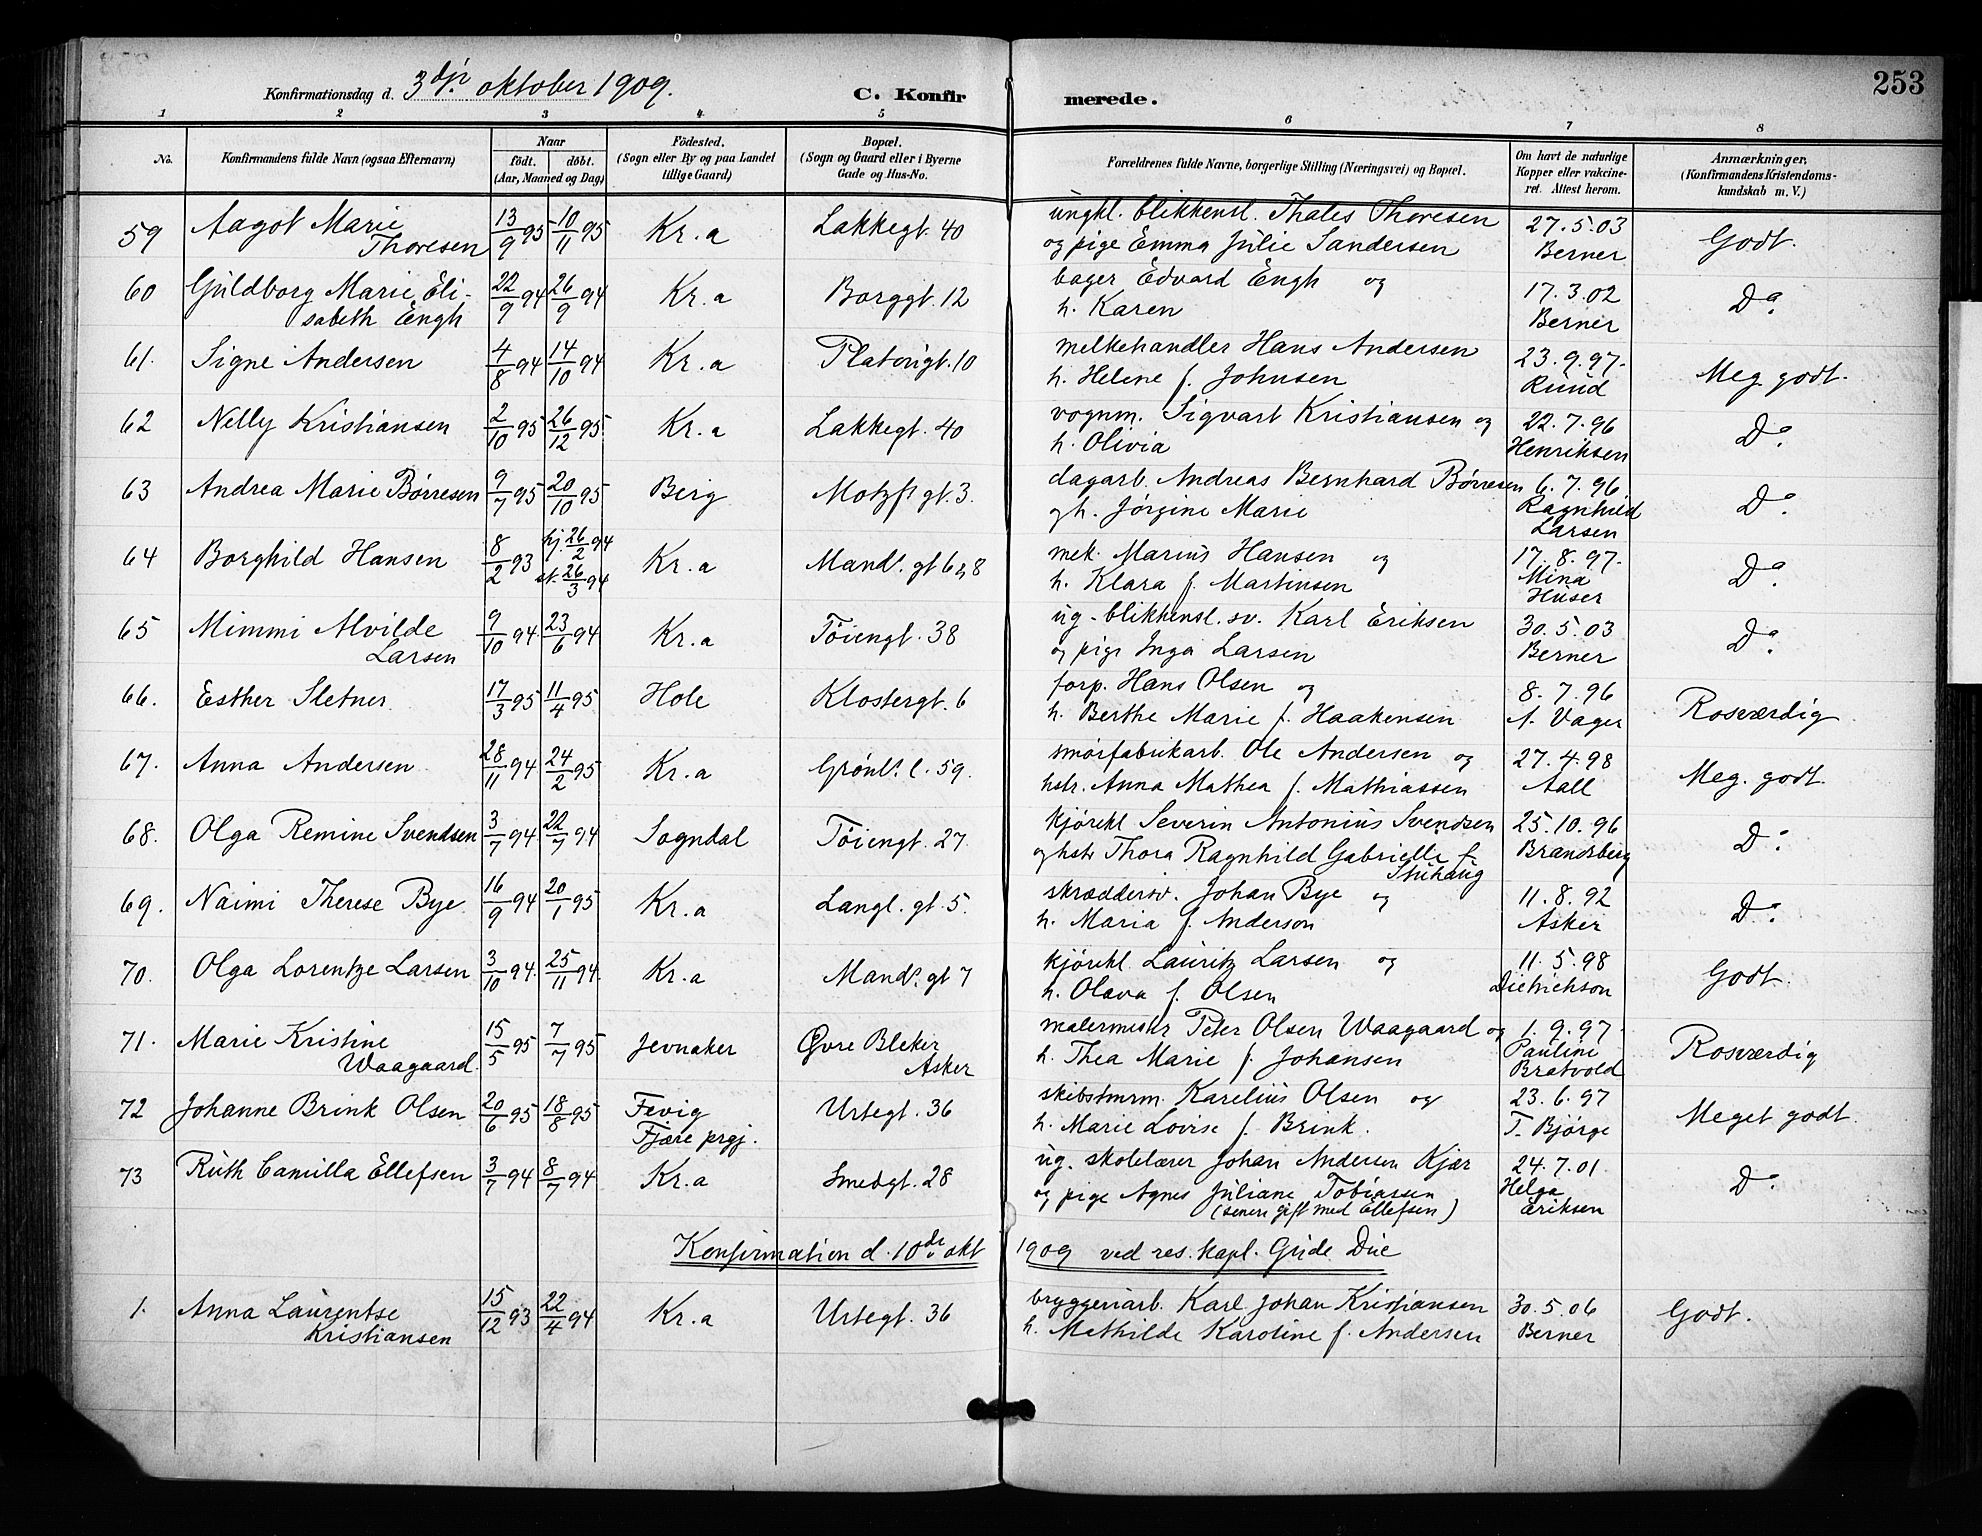 253
Konfirmationsdag d. 3dje oktober 1909.
C. Konfirmerede.
1 2 3 4 5 6 7 8
No. Konfirmandens fulde Navn (ogsaa Efternavn) Naar født. døbt. (Aar, Maaned og Dag) Födested. (Sogn eller By og paa Landet tillige Gaard) Bopæl. (Sogn og Gaard eller i Byerne Gade og Hus-No. Forældrenes fulde Navne, borgerlige Stilling (Næringsvei) og Bopæl. Om havt de naturlige Kopper eller vakcineret. Attest herom. Anmærkninger. (Konfirmandens Kristendomskundskab m. V.)
59 Aagot Marie Thoresen 13/9 95 10/11 95 Kr.a Lakkegt. 40 ungkl. blikkensl. Thales Thoresen og pige Emma Julie Sandersen 27.5.03 Berner Godt.
60 Guldborg Marie Elisabeth Engh 22/9 94 26/9 94 Kr.a Borggt. 12 bager Edvard Engh og h. Karen 17.3.02 Berner Do.
61. Signe Andersen 4/8 94 14/10 94 Kr.a Platougt. 10 melkehandler Hans Andersen h. Helene f. Johnsen 23.9.97. Ruud Meg. godt.
62 Nelly Kristiansen 2/10 95 26/12 95 Kr.a Lakkegt. 40 vognm. Sigvart Kristiansen og h. Olivia 22.7.96 Henriksen Do.
63 Andrea Marie Børresen 9/7 95 20/10 95 Berg Motzf. gt. 3. dagarb. Andreas Bernhard Børresen og h. Jørgine Marie 6.7.96 Ragnhild Larsen Do.
64 Borghild Hansen 8/2 93 hj. 26/2 94 st. 26/3 94 Kr.a Mands. gt 6 & 8 mek. Marius Hansen og h. Klara f. Martinsen 17.8.97. Mina Huser Do.
65 Mimmi Alvilde Larsen 9/10 94 23/6 94 Kr.a Tøiengt. 38 ug. blikkensl. sv. Karl Eriksen og pige Inga Larsen 30.5.03 Berner Do.
66. Esther Sletner 17/3 95 11/4 95 Hole Klostergt. 6 forp. Hans Olsen og h. Berthe Marie f. Haakensen 8.7.96 A. Vager Rosværdig
67. Anna Andersen 28/11 94 24/2 95 Kr.a Grønl. l. 59. smørfabrikarb. Ole Andersen og hstr. Anna Mathea f. Mathiassen 27.4.98 Aall Meg. godt.
68. Olga Remine Svendsen 3/7 94 22/7 94 Sogndal Tøiengt. 27. kjørekl Severin Antonius Svendsen og hstr Thora Ragnhild Gabrielle f. Stuhaug 25.10.96 Brandsberg Do.
69. Naimi Therese Bye 16/9 94 20/1 95 Kr.a Langl. gt. 5. skræddersv. Johan Bye og h. Maria f. Anderson 11.8.92 Asker Do.
70. Olga Lorentze Larsen 3/10 94. 25/11 94 Kr.a Mands. gt 7 kjørekl. Lauritz Larsen og h. Olava f. Olsen 11.5.98 Dietrichson Godt.
71. Marie Kristine Waagaard. 15/5 95 7/7 95 Jevnaker Øvre Bleker Asker malermestr Peter Olsen Waagaard og h. Thea Marie f. Johansen 1.9.97 Pauline Bratvold Rosværdig
72 Johanne Brink Olsen 20/6 95 18/8 95 Fevig Fjære prgj. Urtegt. 36 skibstmrm. Karelius Olsen og h. Marie Lovise f. Brink. 23.6.97 T. Bjørge Meget godt.
73 Ruth Camilla Ellefsen 3/7 94 8/7 94 Kr.a Smedgt. 28 ug. skolelærer Johan Andersen Kjær og pige Agnes Juliane Tobiassen (senere gift med Ellefsen) 24.7.01. Helga Eriksen Do.
Konfirmation d. 10de okt 1909 ved res. kapl. Gude Due
1. Anna Laurentse Kristiansen 15/12 93 22/4 94 Kr.a Urtegt. 36 bryggeriarb. Karl Johan Kristiansen h. Mathilde Karoline f. Andersen 30.5.06 Berner Godt.